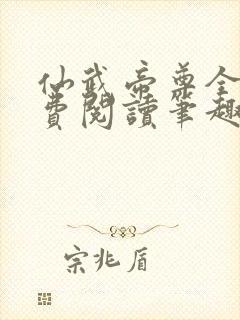 仙武帝尊全
费阅读笔趣
宗兆盾